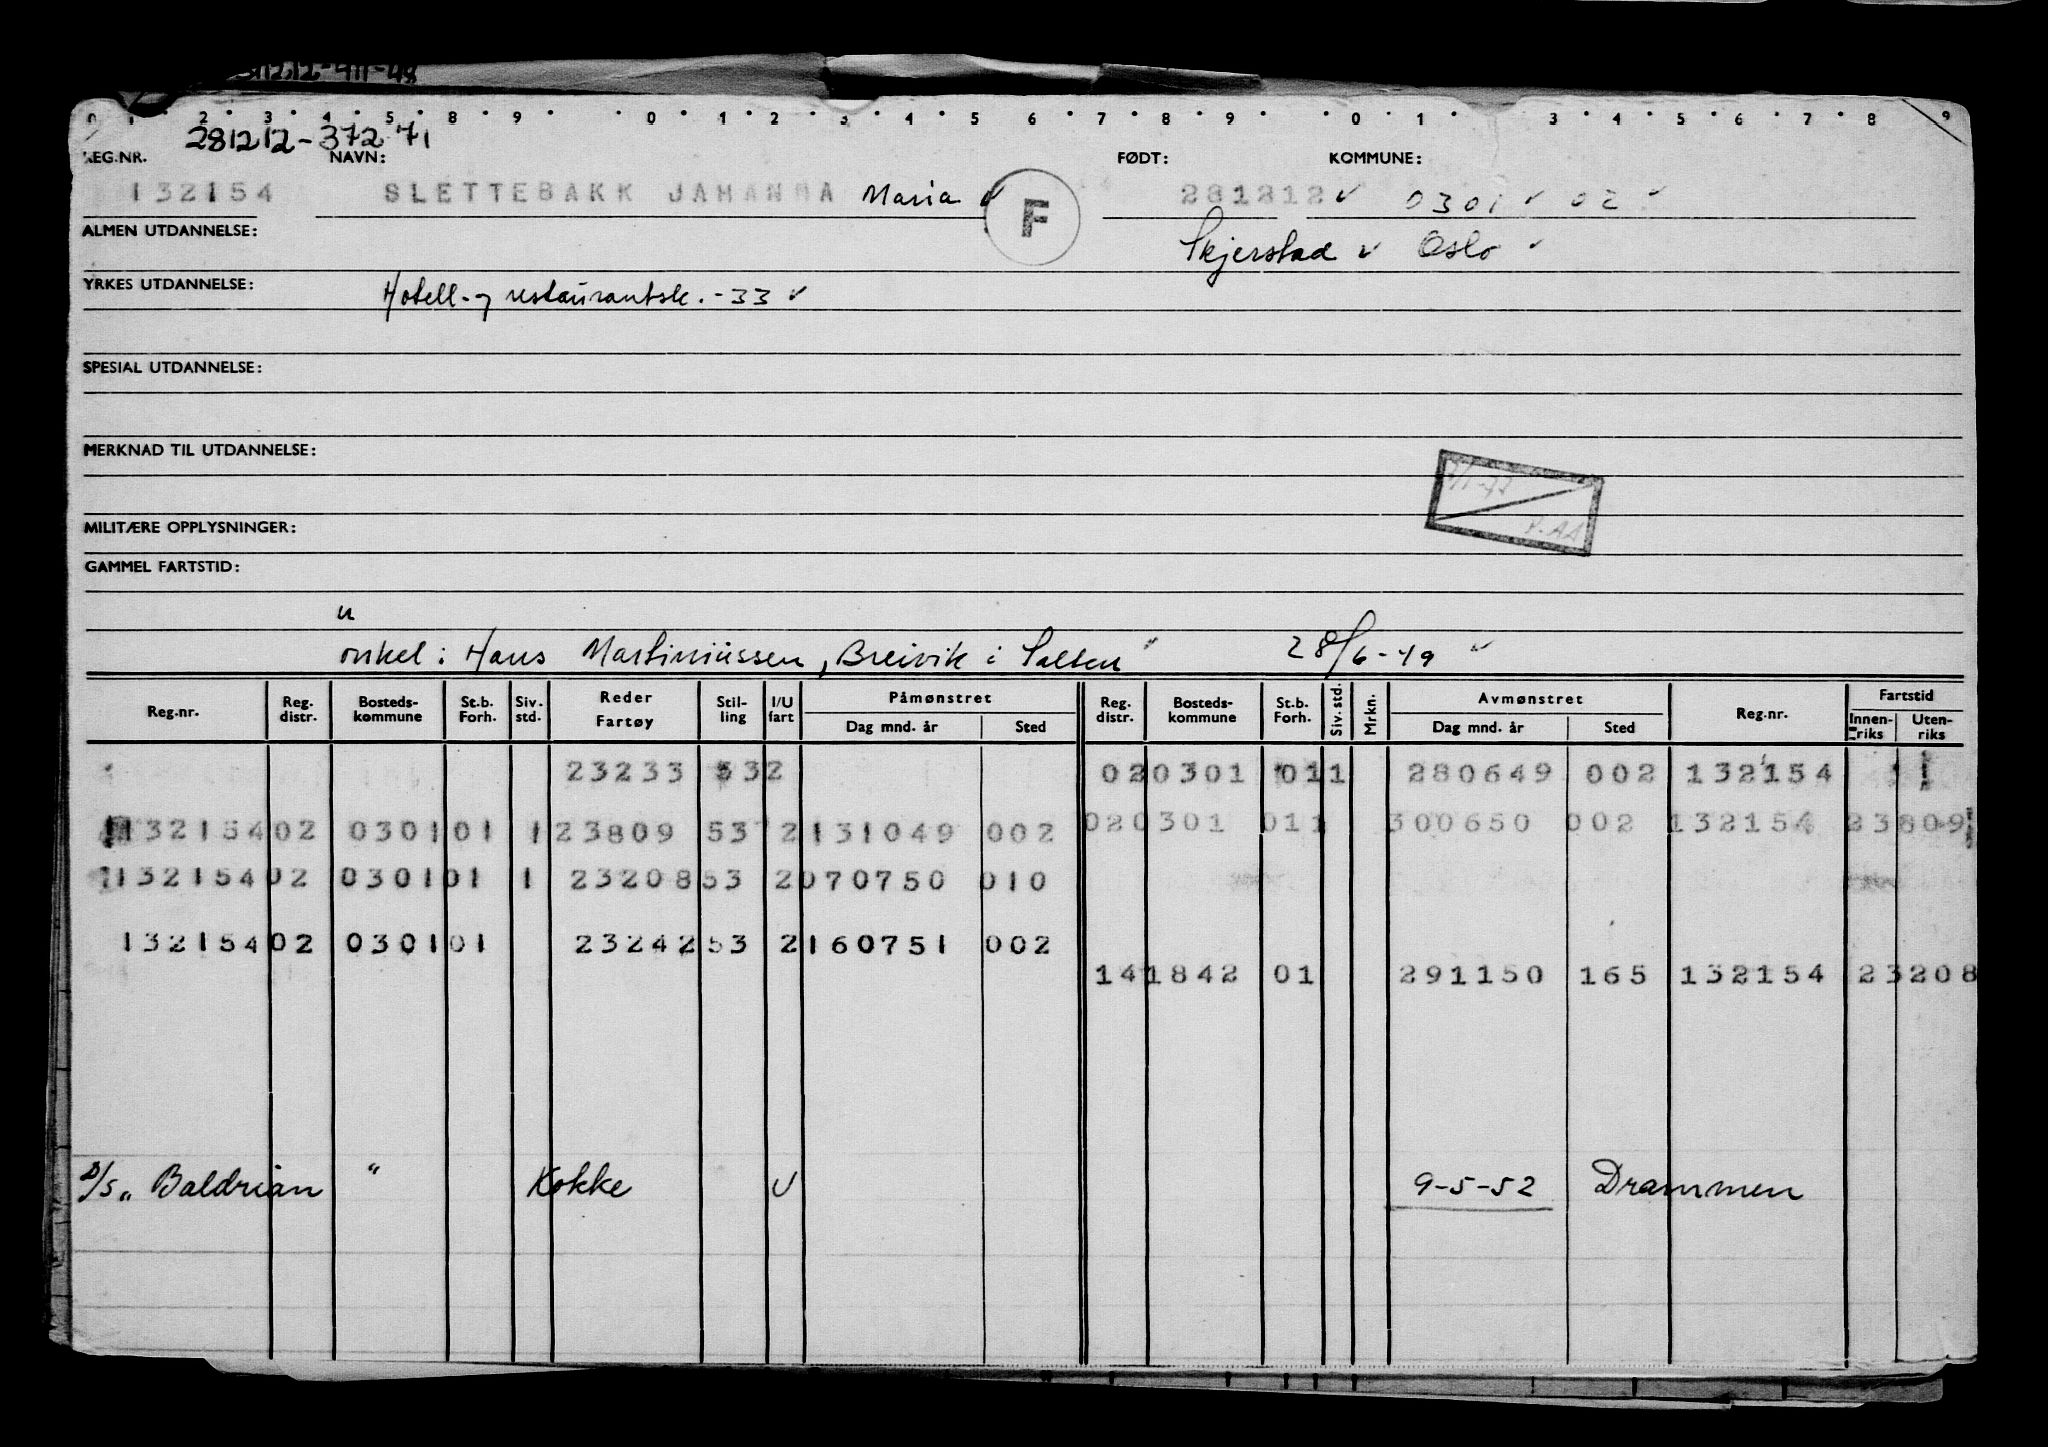 0 1 2 3 4 5 8 9 0 1 2 3 4 5 6 7 8 9 0 1 3 4 5 6 7 8 9
281212-372 71
REG.NR. NAVN: FØDT: KOMMUNE:
132154 SLETTEBAKK JAHANNA Maria F 281212 0301 02
ALMEN UTDANNELSE: Skjerstad Oslo
YRKES UTDANNELSE: Hotell- og restaurantsk. -33
SPESIAL UTDANNELSE:
MERKNAD TIL UTDANNELSE:
MILITÆRE OPPLYSNINGER:
GAMMEL FARTSTID:
u
onkel: Hans Martiniussen, Breivik i Salten " 28/6-49 "
Reg.nr. Reg. distr. Bosteds-kommune St.b. Forh. Siv. std. Reder Fartøy Stil-ling I/U fart Påmønstret Dag mnd. år Sted Reg. distr. Bosteds-kommune St.b. Forh. Siv. std. Mrkn. Avmønstret Dag mnd. år Sted Reg.nr. Fartstid Innen-riks Uten-riks
23233 532 02 0301 01 1 280649 002 132154
132154 02 0301 01 1 23809 53 2 131049 002 02 0301 01 1 300650 002 132154 23809
132154 02 0301 01 1 23208 53 2 070750 010
132154 02 0301 01 23242 53 2 160751 002
14 1842 01 291150 165 132154 23208
D/S " Baldrian " Kokke U 9-5-52 Drammen